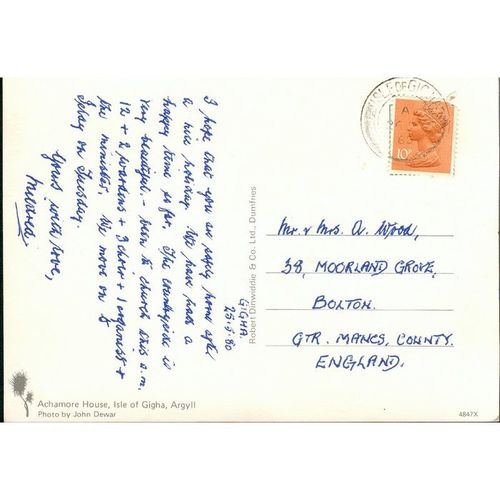 GIGHA.
25-5-80
I hope that you are safely home after
a nice holiday. We have had a
happy time so far. The countryside is
very beautiful. - been to church this a.m.
12 + 2 wardens + 3 choir + 1 organist +
the minister. We move on to
Islay on Tuesday.
Yours with love,
Mildred
ISLE OF GIGHA
10P
Mr. & Mrs. A. Wood,
38, MOORLAND GROVE,
BOLTON.
GTR. MANCS, COUNTY.
ENGLAND.
Robert Dinwiddie & Co. Ltd., Dumfries
Achamore House, Isle of Gigha, Argyll
Photo by John Dewar
4847X